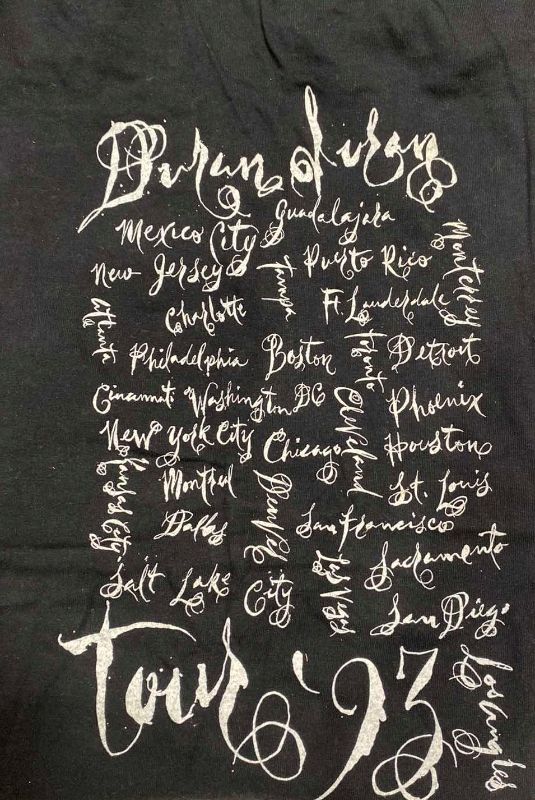 Duran Duran
Guadalajara
Mexico City
Monterrey
New Jersey
Tampa
Puerto Rico
Atlanta
Charlotte
Ft. Lauderdale
Philadelphia
Boston
Toronto
Detroit
Cincinnati
Washington DC
Cleveland
Phoenix
New York City
Chicago
Houston
Kansas City
Montreal
Denver
St. Louis
Dallas
San Francisco
Sacramento
Salt Lake City
Las Vegas
San Diego
Los Angeles
Tour '93